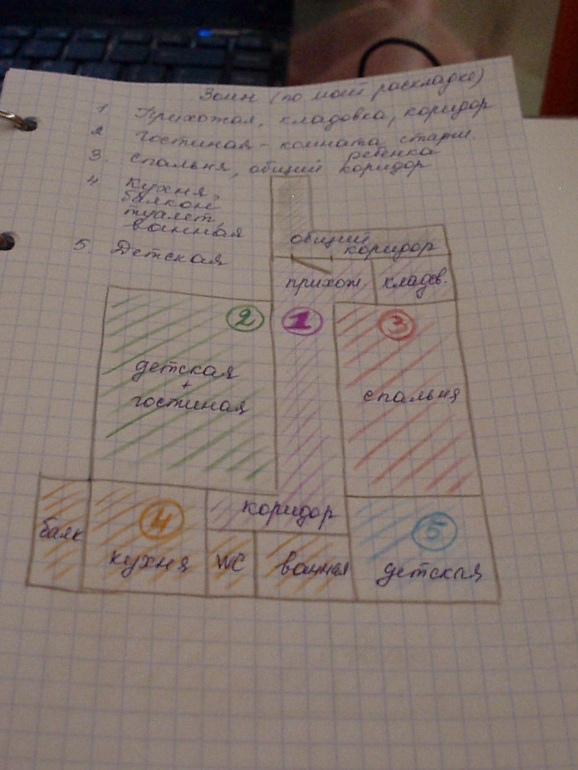 Зоны (по моей раскладке)
1 Прихожая, кладовка, коридор
2 Гостиная - комната старш. ребенка
3. спальня, общий коридор
4 Кухня,
балкон
туалет,
ванная
5 Детская
общий коридор
прихож. кладов.
2 1 3
детская
+
гостиная
спальня
коридор
4 5
балк
кухня WC ванная детская